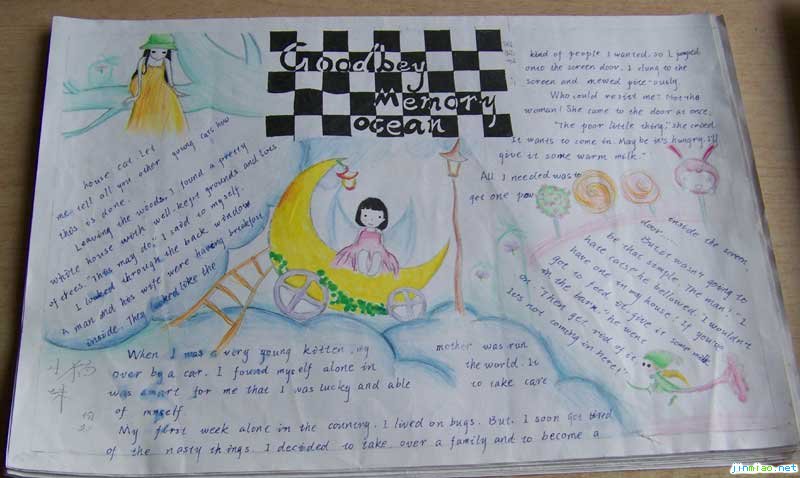 Goodbey
Memory
ocean
When I was a very young kitten, my mother was run
over by a car. I found myself alone in the world. It
was smart for me that I was lucky and able to take care
of myself
My first week alone in the country, I lived on bugs. But, I soon got tired
of the nasty things. I decided to take over a family and to become a
house cat. Let
me tell all you other young cats how
this is done.
Leaving the woods, I found a pretty
white house with well-kept grounds and lots
of trees. "This may do," I said to myself.
I looked through the back window
A man and his wife were having breakfast
inside. They looked like the
kind of people I wanted. so I jumped
onto the screen door. I clung to the
screen and mewed pite-ously
Who could resist me? Not the
woman! She came to the door at once.
"The poor little thing," she cried.
It wants to come in. Maybe it's hungry. I'll
give it some warm milk."
All I needed was to
get one paw
inside the screen
door.....
But it wasn't going to
be that simple. The man "I
hate cats" he bellowed. I wouldn't
have one in my house! If you've
got to feed it, give it some milk
in the barn." he went
on. "Then get rid of it
It's not coming in here!"
jinmiao.net